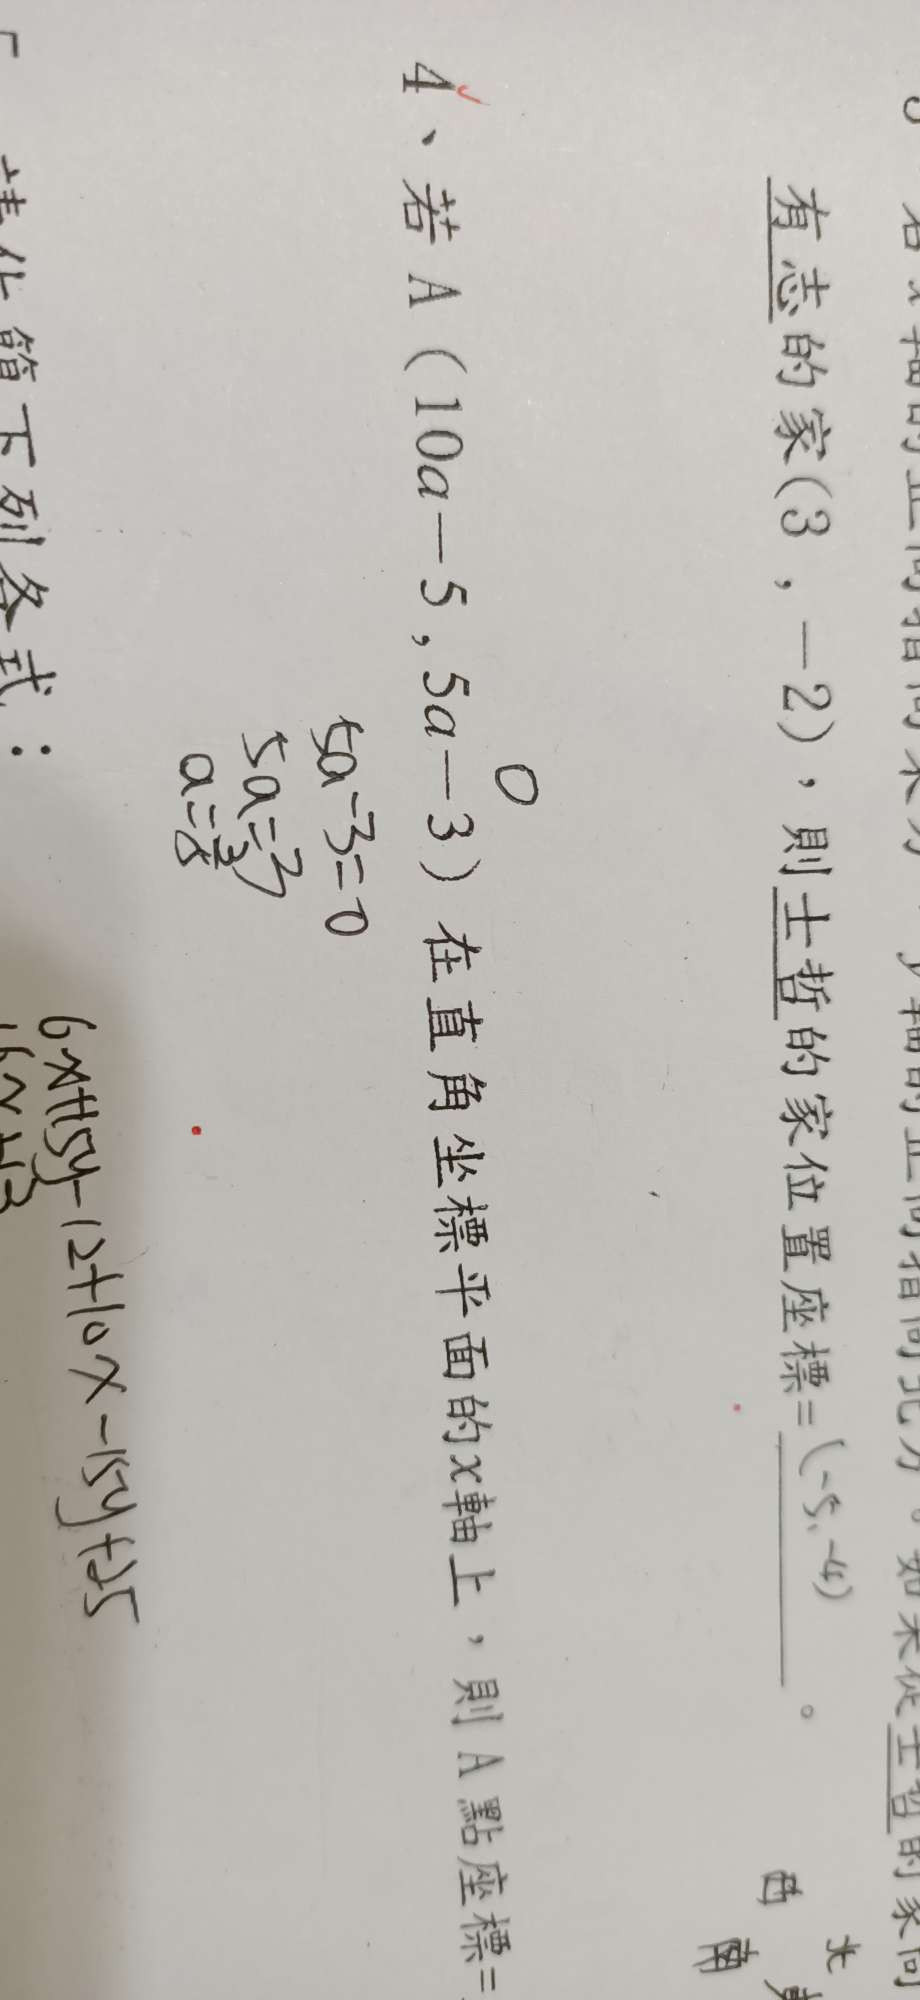 有志的家(3，-2)，則士哲的家位置座標=(-5,-4)。
西 北
南
4、若A（10a-5,5a-3）在直角坐標平面的x軸上，則A點座標=
0
5a-3=0
5a=3
a=3/5
請化簡下列各式：
6x+15y-12+10x-15y+25
16x+13